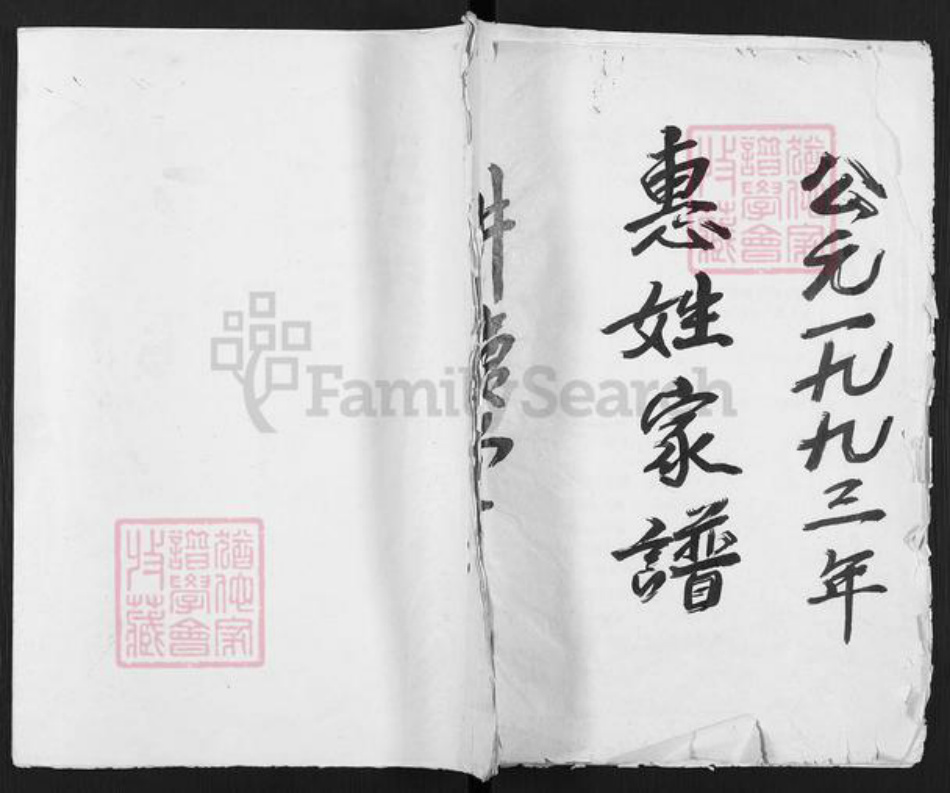 公元一九九三年
惠姓家譜
猶他家
譜學會
收藏
猶他家
譜學會
收藏
FamilySearch